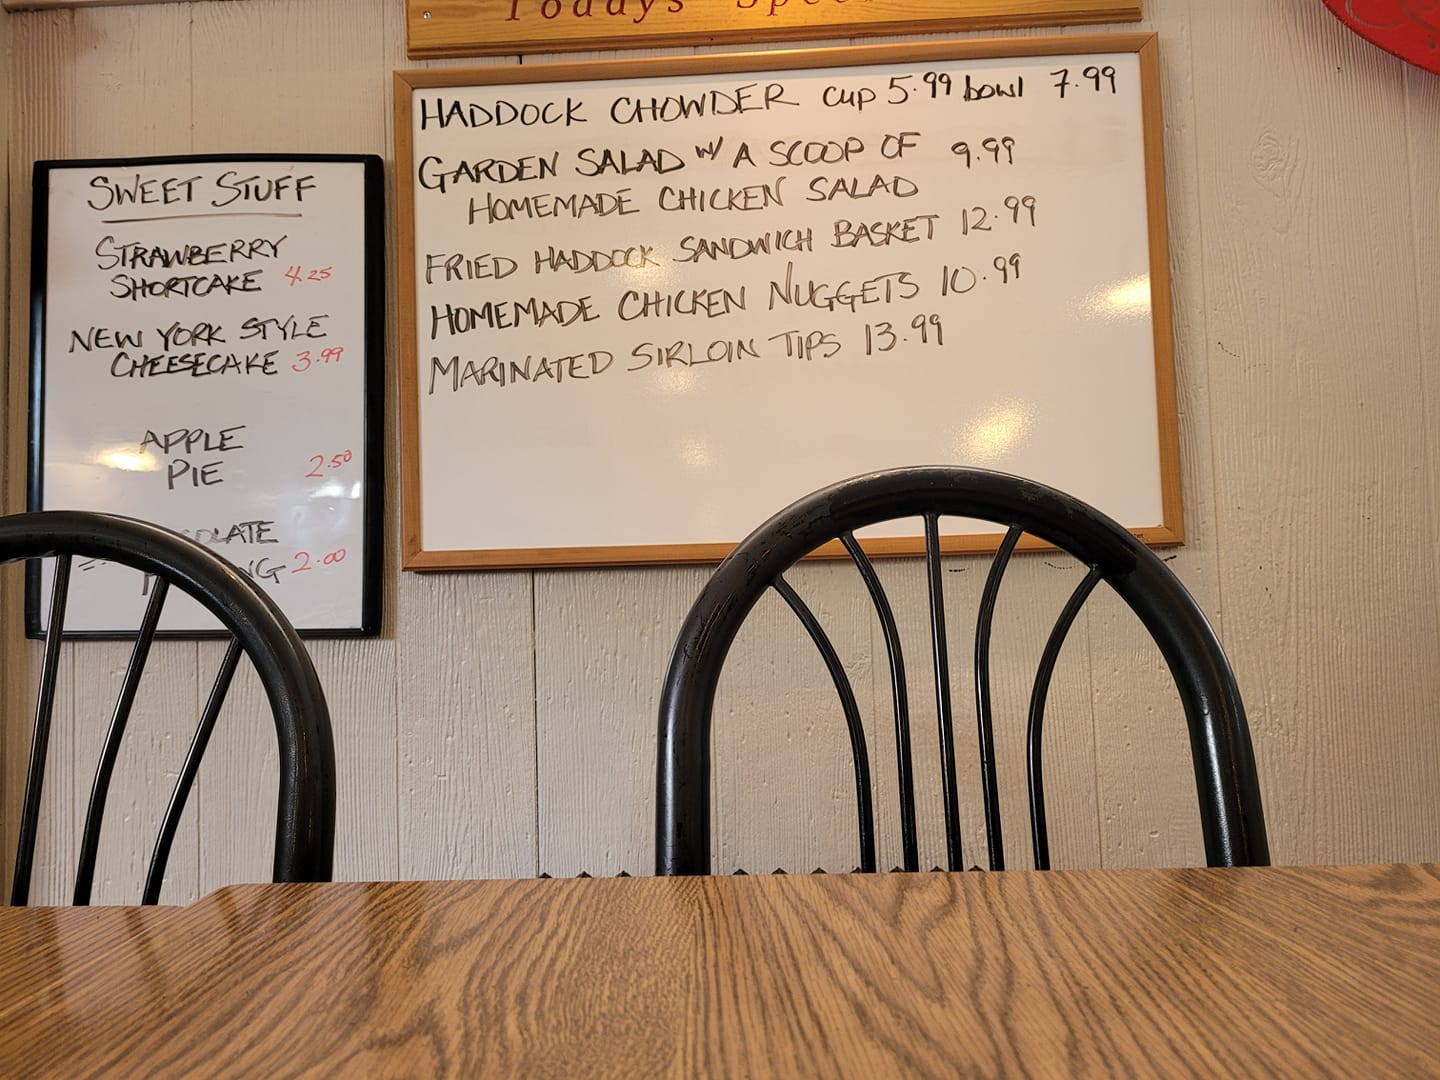 Todays
SWEET STUFF
STRAWBERRY
SHORTCAKE 4.25
NEW YORK STYLE
CHEESECAKE 3.99
APPLE
PIE 2.50
2.00
HADDOCK CHOWDER cup 5.99 bowl 7.99
GARDEN SALAD w/ A SCOOP OF 9.99
HOMEMADE CHICKEN SALAD
FRIED HADDOCK SANDWICH BASKET 12.99
HOMEMADE CHICKEN NUGGETS 10.99
MARINATED SIRLOIN TIPS 13.99